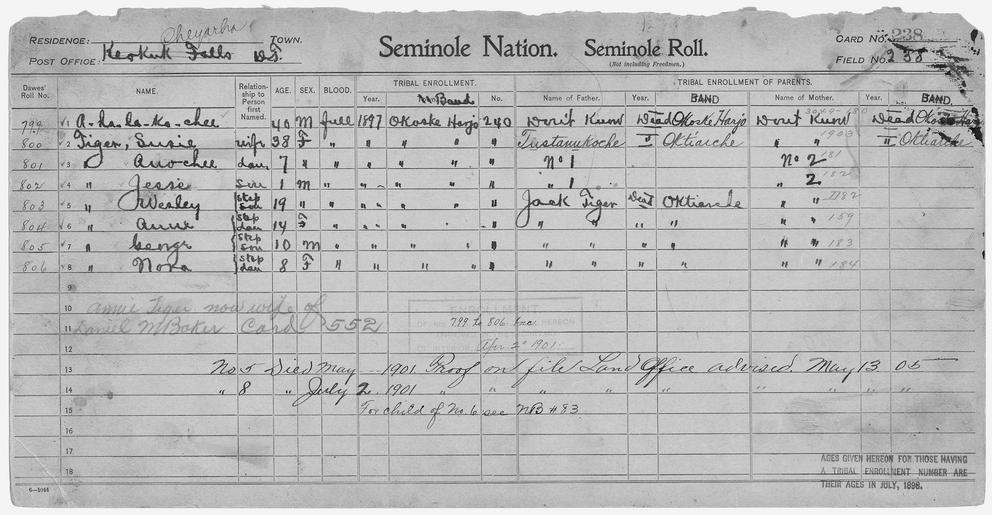 Cheyarha
RESIDENCE: TOWN. Seminole Nation. Seminole Roll. CARD NO. 238
POST OFFICE: Keokuk Falls O.T. (Not including Freedmen.) FIELD NO. 238
Dawes' Roll No. NAME. Relationship to Person first Named. AGE. SEX. BLOOD. TRIBAL ENROLLMENT. TRIBAL ENROLLMENT OF PARENTS.
Year. Band No. Name of Father. Year. BAND Name of Mother. Year. BAND.
799 1 A-ha-la-ko-chee 40 M full 1897 Okoske Harjo 240 Don't Know Dead Okoske Harjo Don't Know Dead Okoske Harjo
800 2 Tiger, Susie wife 38 F " " " " " Tustanukoche " Oktiarche 1903 " Oktiarche
801 3 " Ano-chee dau 7 " " " " " " No 1 No 2 181
802 4 " Jesse son 1 M " " " " " " 1 " 2 182
803 5 " Wesley step son 19 " " " " " " Jack Tiger Dead Oktiarche " "
804 6 " Anna step dau 14 F " " " " " " " " " " " 159
805 7 " George step son 10 M " " " " " " " " " " " 183
806 8 " Nora step dau 8 F " " " " " " " " " " " 184
9
10 Annie Tiger now wife of
11 Daniel McBaker Card 552
ENROLLMENT
OF NOS. 799 to 806 Inc. HEREON
12 OF INTERIOR Apr. 2" 1901.
13 No 5 Died May 1901 Proof on file Land Office advised May 13 05
14 " 8 " July 2 1901 " " " " " " " "
15 For child of No. 6 see NB #83
16
17
18
AGES GIVEN HEREON FOR THOSE HAVING
A TRIBAL ENROLLMENT NUMBER ARE
THEIR AGES IN JULY, 1898.
6-1044